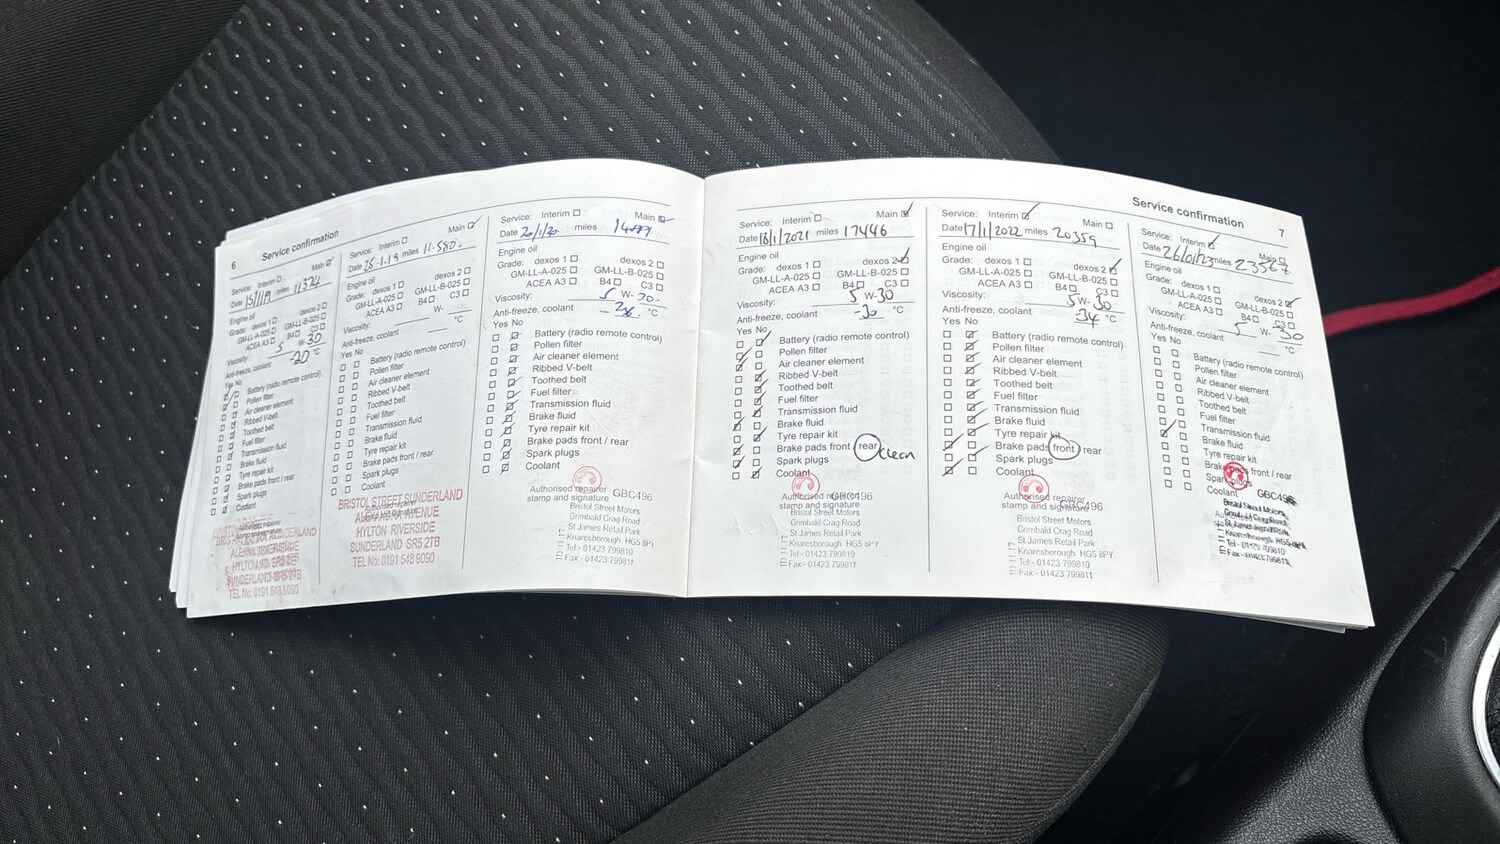 6 Service confirmation
Service: Interim Main
Date 15/1/19 miles 11374
Engine oil
Grade: dexos 1 dexos 2
GM-LL-A-025 GM-LL-B-025
ACEA A3 B4 C3
Viscosity: 5 W-30
Anti-freeze, coolant -20 °C
Yes No
Battery (radio remote control)
Pollen filter
Air cleaner element
Ribbed V-belt
Toothed belt
Fuel filter
Transmission fluid
Brake fluid
Tyre repair kit
Brake pads front / rear
Spark plugs
Coolant
SUNDERLAND
TEL No: 0191 548 9090
Service: Interim Main
Date 25-1-19 miles 11-580.
Engine oil
Grade: dexos 1 dexos 2
GM-LL-A-025 GM-LL-B-025
ACEA A3 B4 C3
Viscosity: W-
Anti-freeze, coolant °C
Yes No
Battery (radio remote control)
Pollen filter
Air cleaner element
Ribbed V-belt
Toothed belt
Fuel filter
Transmission fluid
Brake fluid
Tyre repair kit
Brake pads front / rear
Spark plugs
Coolant
BRISTOL STREET SUNDERLAND
AVENUE
HYLTON RIVERSIDE
SUNDERLAND SR5 2TB
TEL No: 0191 548 9090
Service: Interim Main
Date 20/1/20 miles
Engine oil
Grade: dexos 1 dexos 2
GM-LL-A-025 GM-LL-B-025
ACEA A3 B4 C3
Viscosity: 5 W-30-
Anti-freeze, coolant °C
Yes No
Battery (radio remote control)
Pollen filter
Air cleaner element
Ribbed V-belt
Toothed belt
Fuel filter
Transmission fluid
Brake fluid
Tyre repair kit
Brake pads front / rear
Spark plugs
Coolant
Authorised repairer
stamp and signature GBC496
Bristol Street Motors
Grimbald Crag Road
St James Retail Park
Knaresborough HG5 8PY
Tel:- 01423 799810
Fax:- 01423 799811
Service: Interim Main
Date 18/1/2021 miles 17446
Engine oil
Grade: dexos 1 dexos 2
GM-LL-A-025 GM-LL-B-025
ACEA A3 B4 C3
Viscosity: 5 W-30
Anti-freeze, coolant -30 °C
Yes No
Battery (radio remote control)
Pollen filter
Air cleaner element
Ribbed V-belt
Toothed belt
Fuel filter
Transmission fluid
Brake fluid
Tyre repair kit
Brake pads front / rear clean
Spark plugs
Coolant
Authorised repairer GBC496
stamp and signature
Bristol Street Motors
Grimbald Crag Road
St James Retail Park
Knaresborough HG5 8PY
Tel:- 01423 799810
Fax:- 01423 799811
Service confirmation 7
Service: Interim Main
Date 17/1/2022 miles 20359
Engine oil
Grade: dexos 1 dexos 2
GM-LL-A-025 GM-LL-B-025
ACEA A3 B4 C3
Viscosity: 5 W-30
Anti-freeze, coolant -34 °C
Yes No
Battery (radio remote control)
Pollen filter
Air cleaner element
Ribbed V-belt
Toothed belt
Fuel filter
Transmission fluid
Brake fluid
Tyre repair kit
Brake pads front / rear
Spark plugs
Coolant
Authorised repairer
stamp and signature GBC496
Bristol Street Motors
Grimbald Crag Road
St James Retail Park
Knaresborough HG5 8PY
Tel:- 01423 799810
Fax:- 01423 799811
Service: Interim Main
Date 26/01/23 miles 23567
Engine oil
Grade: dexos 1 dexos 2
GM-LL-A-025 GM-LL-B-025
ACEA A3 B4 C3
Viscosity: 5 W-30
Anti-freeze, coolant °C
Yes No
Battery (radio remote control)
Pollen filter
Air cleaner element
Ribbed V-belt
Toothed belt
Fuel filter
Transmission fluid
Brake fluid
Tyre repair kit
Brake pads front / rear
Spark plugs
Coolant GBC496
Bristol Street Motors
Knaresborough HG5
Tel:- 01423 799810
Fax:- 01423 799811